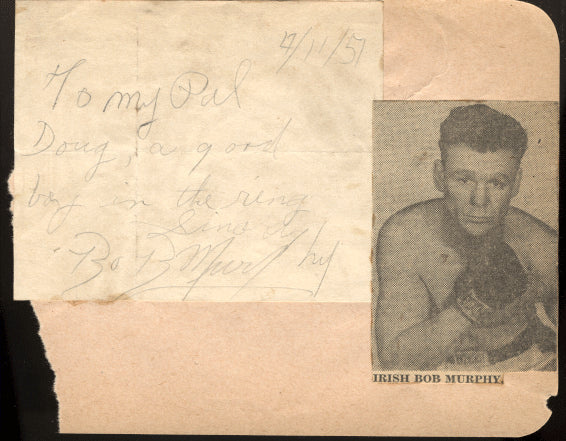 4/11/51
To my Pal
Doug, a good
boy in the ring
Sincerly
Bob Murphy
IRISH BOB MURPHY.